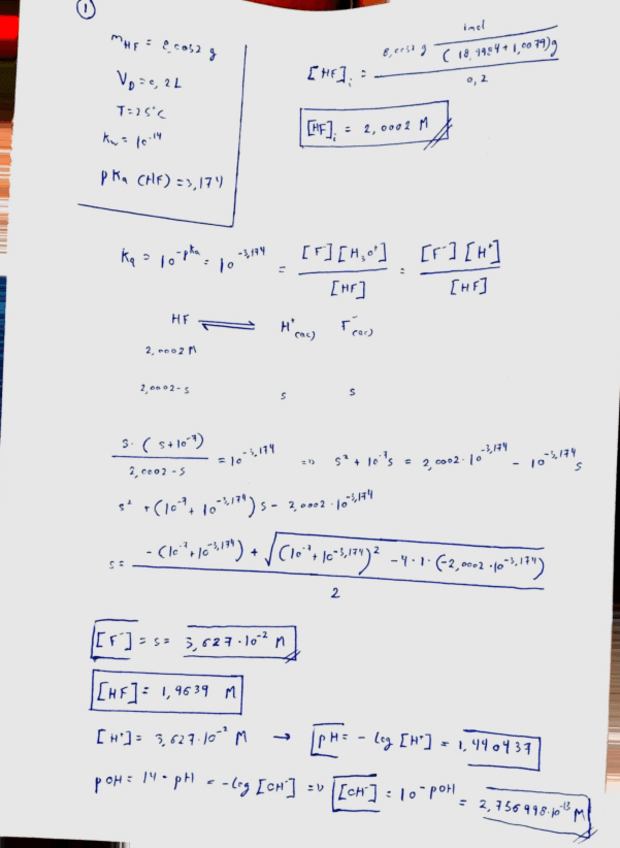 1
m_HF = 8,0052 g
V_D = 0,2 L
T = 25°C
K_w = 10^-14
pKa (HF) = 3,174
[HF]_i = 8,0052 g mol / (18,9984 + 1,0079)g / 0,2
[HF]_i = 2,0002 M
Ka = 10^-pKa = 10^-3,174 = [F^-][H_3O^+] / [HF] = [F^-][H^+] / [HF]
HF ⇌ H^+(ac) F^-(ac)
2,0002 M
2,0002-s s s
s·(s+10^-7) / 2,0002-s = 10^-3,174 => s^2 + 10^-7 s = 2,0002·10^-3,174 - 10^-3,174 s
s^2 + (10^-7 + 10^-3,174) s - 2,0002·10^-3,174
s = -(10^-7 + 10^-3,174) + √((10^-7 + 10^-3,174)^2 - 4·1·(-2,0002·10^-3,174)) / 2
[F^-] = s = 3,627·10^-2 M
[HF] = 1,9639 M
[H^+] = 3,627·10^-2 M → pH = -log [H^+] = 1,440437
pOH = 14 - pH = -log [OH^-] => [OH^-] = 10^-pOH = 2,756998·10^-13 M